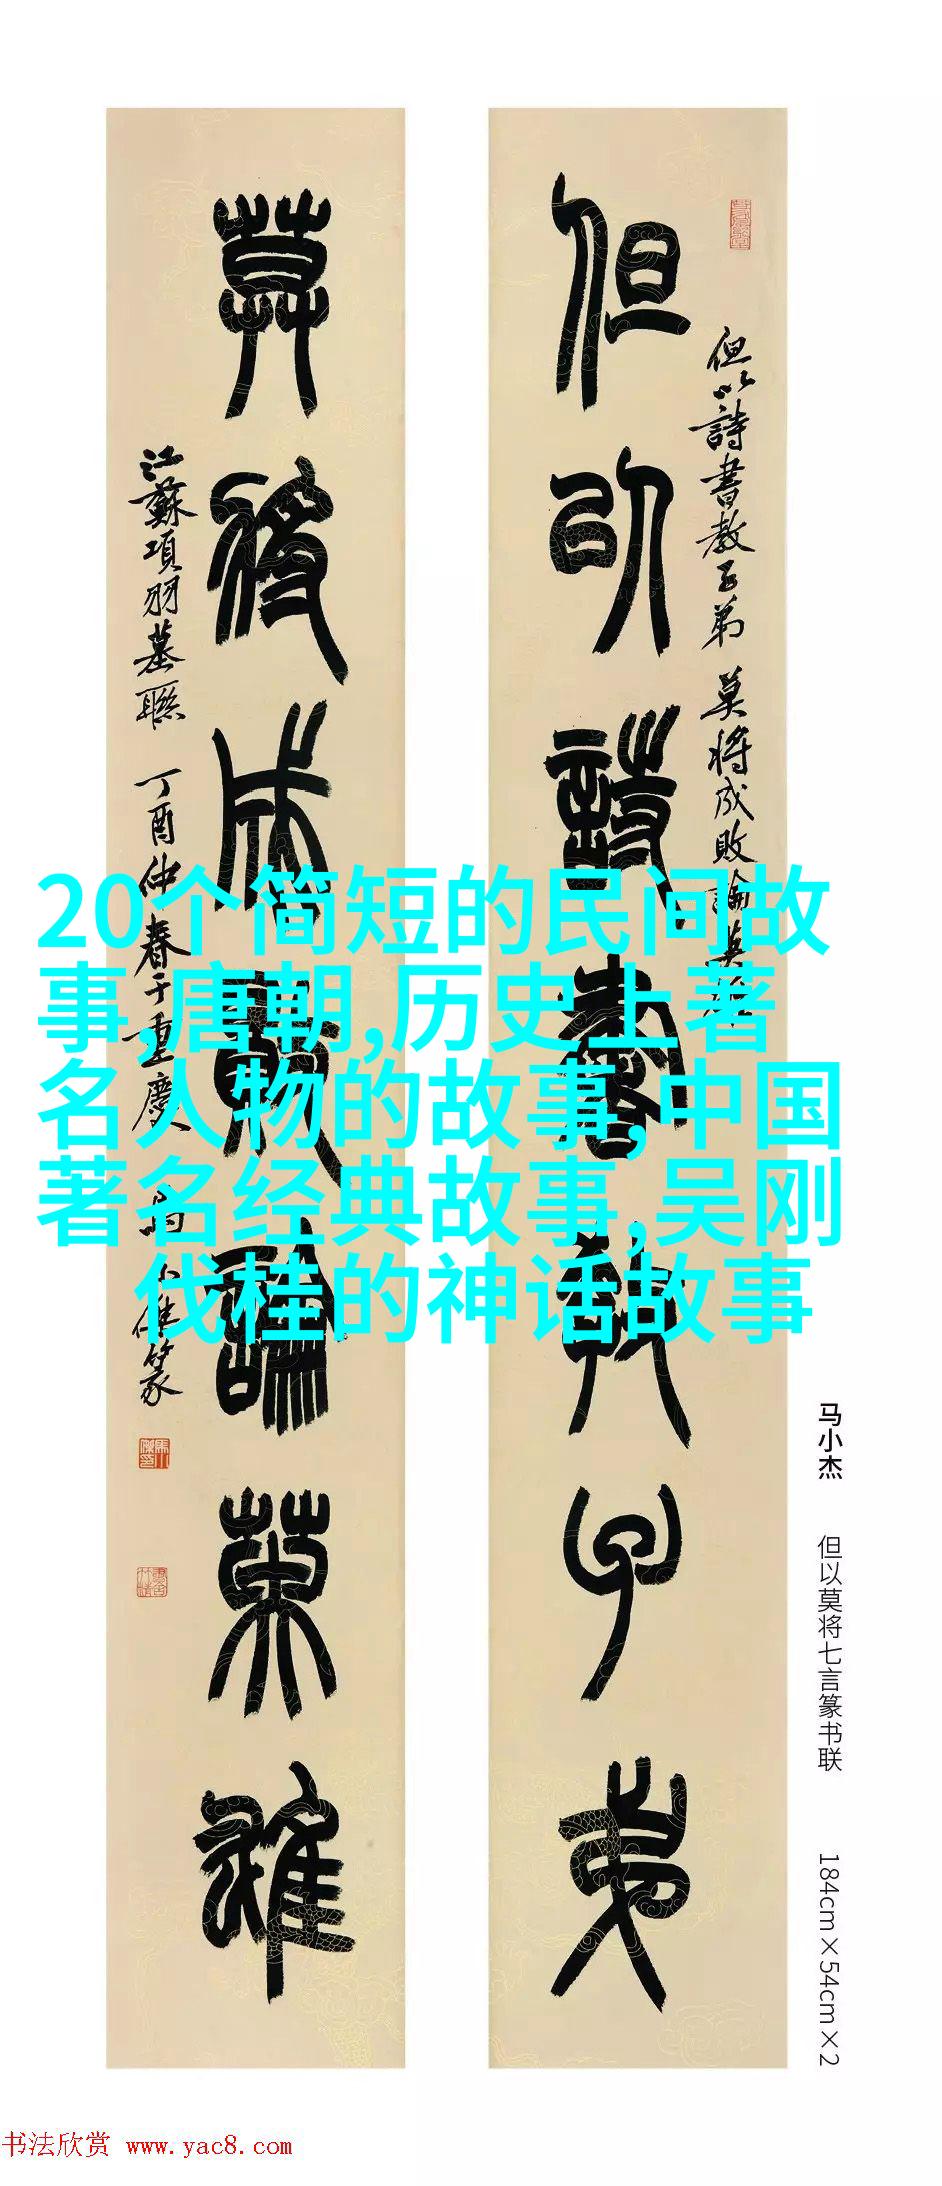 但以詩書教子弟
但以詩書教子弟 莫將成敗論英雄
莫將成敗論英雄
江蘇項羽墓聯 丁酉仲春于重慶 馬小傑篆
20个简短的民间故
事,唐朝,历史上著
名人物的故事,中国
著名经典故事,吴刚
伐桂的神话故事
马小杰 但以莫将七言篆书联 184cm×54cm×2
书法欣赏 www.yac8.com